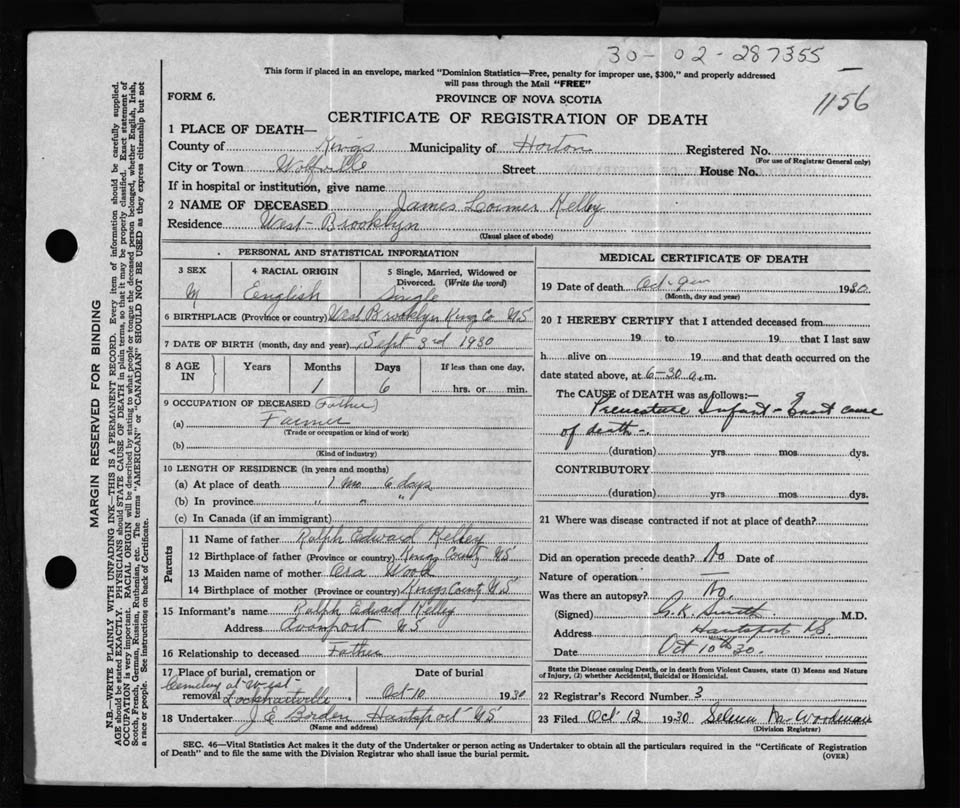 30-02-287355
This form if placed in an envelope, marked "Dominion Statistics—Free, penalty for improper use, $300," and properly addressed
will pass through the Mail "FREE"
1156
FORM 6.
PROVINCE OF NOVA SCOTIA
CERTIFICATE OF REGISTRATION OF DEATH
1 PLACE OF DEATH—
County of Kings Municipality of Horton Registered No.
(For use of Registrar General only)
City or Town Wolfville Street House No.
If in hospital or institution, give name
2 NAME OF DECEASED James Lorimer Kelley
Residence West-Brooklyn
(Usual place of abode)
PERSONAL AND STATISTICAL INFORMATION
3 SEX
M
4 RACIAL ORIGIN
English
5 Single, Married, Widowed or
Divorced. (Write the word)
Single
6 BIRTHPLACE (Province or country) West Brooklyn King Co NS
7 DATE OF BIRTH (month, day and year) Sept 3rd 1930
8 AGE
IN
Years Months Days If less than one day,
1 6 hrs. or min.
9 OCCUPATION OF DECEASED (Father)
(a) Farmer
(Trade or occupation or kind of work)
(b)
(Kind of industry)
10 LENGTH OF RESIDENCE (in years and months)
(a) At place of death 1 mo 6 days
(b) In province " " "
(c) In Canada (if an immigrant)
Parents
11 Name of father Ralph Edward Kelley
12 Birthplace of father (Province or country) Kings County NS
13 Maiden name of mother Ora Wood
14 Birthplace of mother (Province or country) Kings County NS
15 Informant's name Ralph Edward Kelley
Address Avonport NS
16 Relationship to deceased Father
17 Place of burial, cremation or
removal
Cemetery at West
Lockhartville
Date of burial
Oct-10 1930
18 Undertaker J E Borden Hantsport NS
(Name and address)
MEDICAL CERTIFICATE OF DEATH
19 Date of death Oct- 1930
(Month, day and year)
20 I HEREBY CERTIFY that I attended deceased from
19 to 19 that I last saw
h alive on 19 and that death occurred on the
date stated above, at 6-30 a.m.
The CAUSE of DEATH was as follows:—
Premature Infant - Exact cause
of death-
(duration) yrs mos dys.
CONTRIBUTORY
(duration) yrs mos dys.
21 Where was disease contracted if not at place of death?
Did an operation precede death? No Date of
Nature of operation —
Was there an autopsy? No.
(Signed) G.K. Smith M.D.
Address Hantsport NS.
Date Oct 10th 30.
State the Disease causing Death, or in death from Violent Causes, state (1) Means and Nature
of Injury, (2) whether Accidental, Suicidal or Homicidal.
22 Registrar's Record Number 3
23 Filed Oct 12 1930 Woodman
(Division Registrar)
SEC. 46—Vital Statistics Act makes it the duty of the Undertaker or person acting as Undertaker to obtain all the particulars required in the "Certificate of Registration
of Death" and to file the same with the Division Registrar who shall issue the burial permit.
(OVER)
MARGIN RESERVED FOR BINDING
N.B.—WRITE PLAINLY WITH UNFADING INK—THIS IS A PERMANENT RECORD. Every item of information should be carefully supplied.
AGE should be stated EXACTLY. PHYSICIANS should STATE CAUSE OF DEATH in plain terms, so that it may be properly classified. Exact statement of
OCCUPATION is very important. RACIAL ORIGIN will be described by stating to what people or tongue the deceased person belonged, whether English, Irish,
Scotch, French, German, Russian, Ruthenian, etc. The terms "AMERICAN" or "CANADIAN" SHOULD NOT BE USED as they express citizenship but not
a race or people. See instructions on back of Certificate.